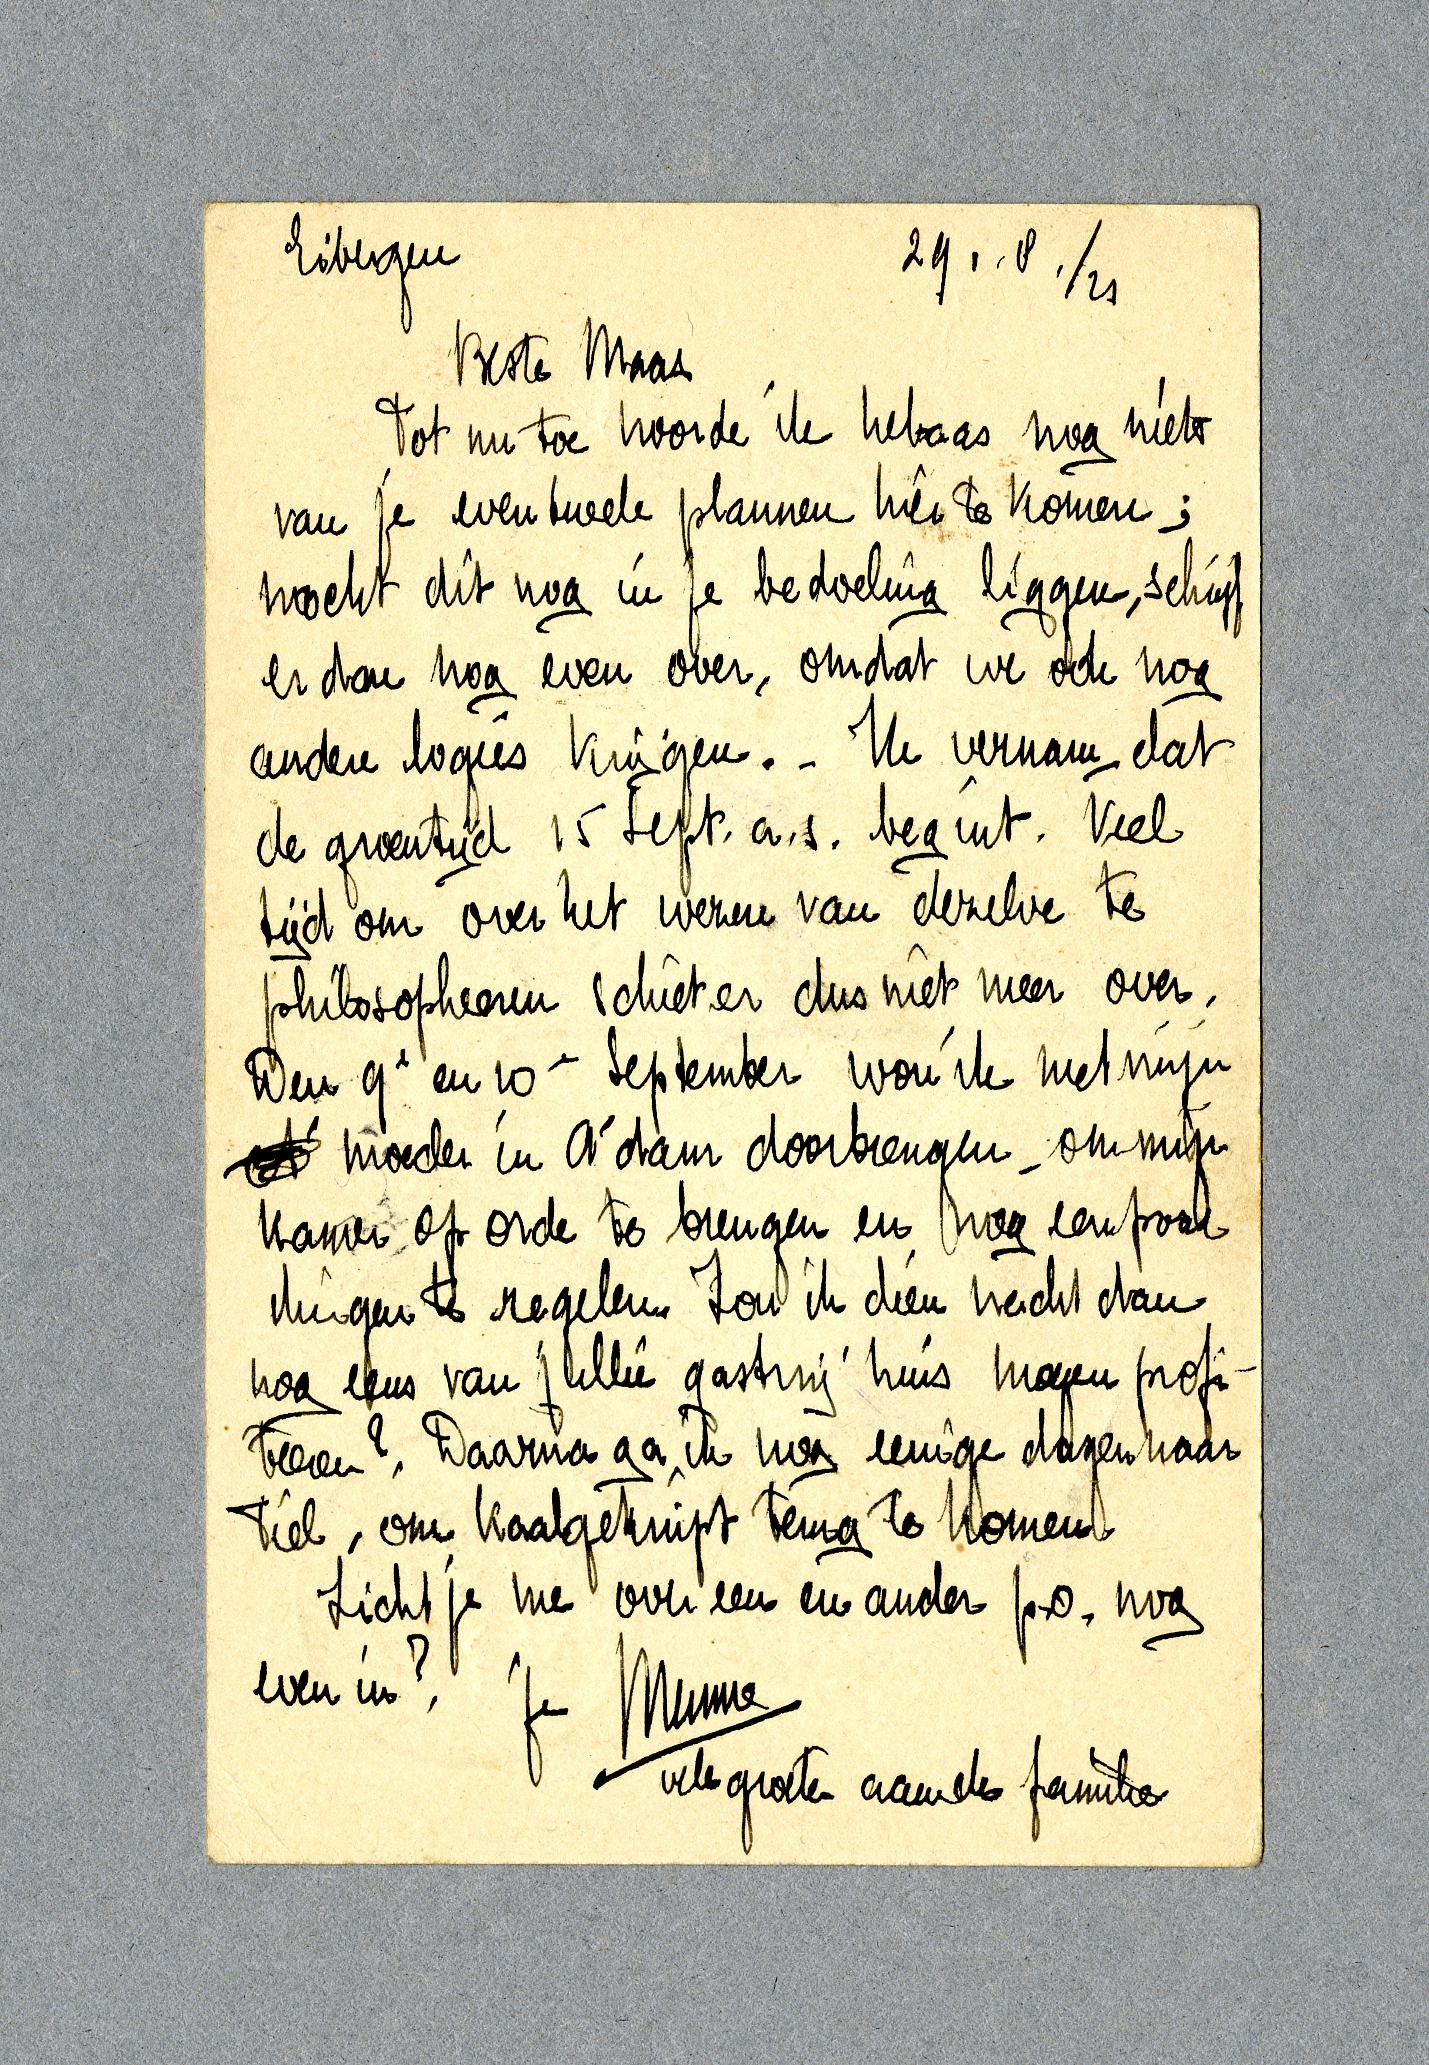 Eibergen 29.8./21
Beste Maas
Tot nu toe hoorde ik helaas nog niets
van je eventueele plannen hier te komen;
mocht dit nog in je bedoeling liggen, schrijf
er dan nog even over, omdat we ook nog
andere logies krijgen. - Ik vernam dat
de groentijd 15 Sept. a.s. begint. Veel
tijd om over het wezen van dezelve te
philosopheeren schiet er dus niet meer over.
Den 9e en 10e September wou ik met mijn
moeder in A'dam doorbrengen - om mijn
kamer op orde te brengen en nog een paar
dingen te regelen. Zou ik dien nacht dan
nog eens van jullie gastvrij huis mogen profi-
teeren? Daarna ga ik nog eenige dagen naar
Tiel, om kaalgeknipt terug te komen
Licht je me over een en ander p.o. nog
even in? je Menno
vele groeten aan de familie